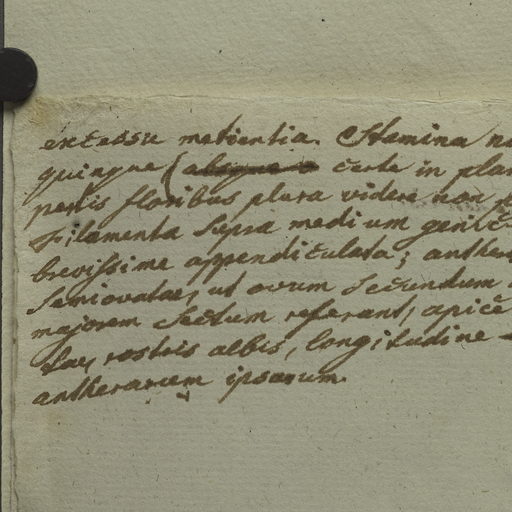 excessu metientia. Stamina
quinque (certe in
floribus plura videre non
Filamenta supra medium
brevissime appendiculata;
semiovatae, ut ovum secundum
majorem sectum referant,
rostris albis, longitudine
antherarum ipsarum.